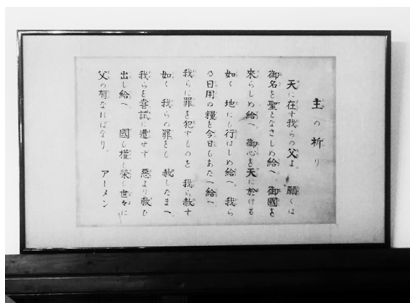 主の祈り
天に在す我らの父よ、願くは
御名を聖となさしめ給へ 御國を
來らしめ給へ、御心を天に於ける
如く 地にも行はしめ給へ、我ら
の日用の糧を今日もあたへ給へ
我らに罪を犯すものを 我ら赦す
如く 我らの罪をも 赦したまへ
我らを嘗試に遭せず 惡より救ひ
出し給へ 國も權も榮も世々に
父の有なればなり、 アーメン